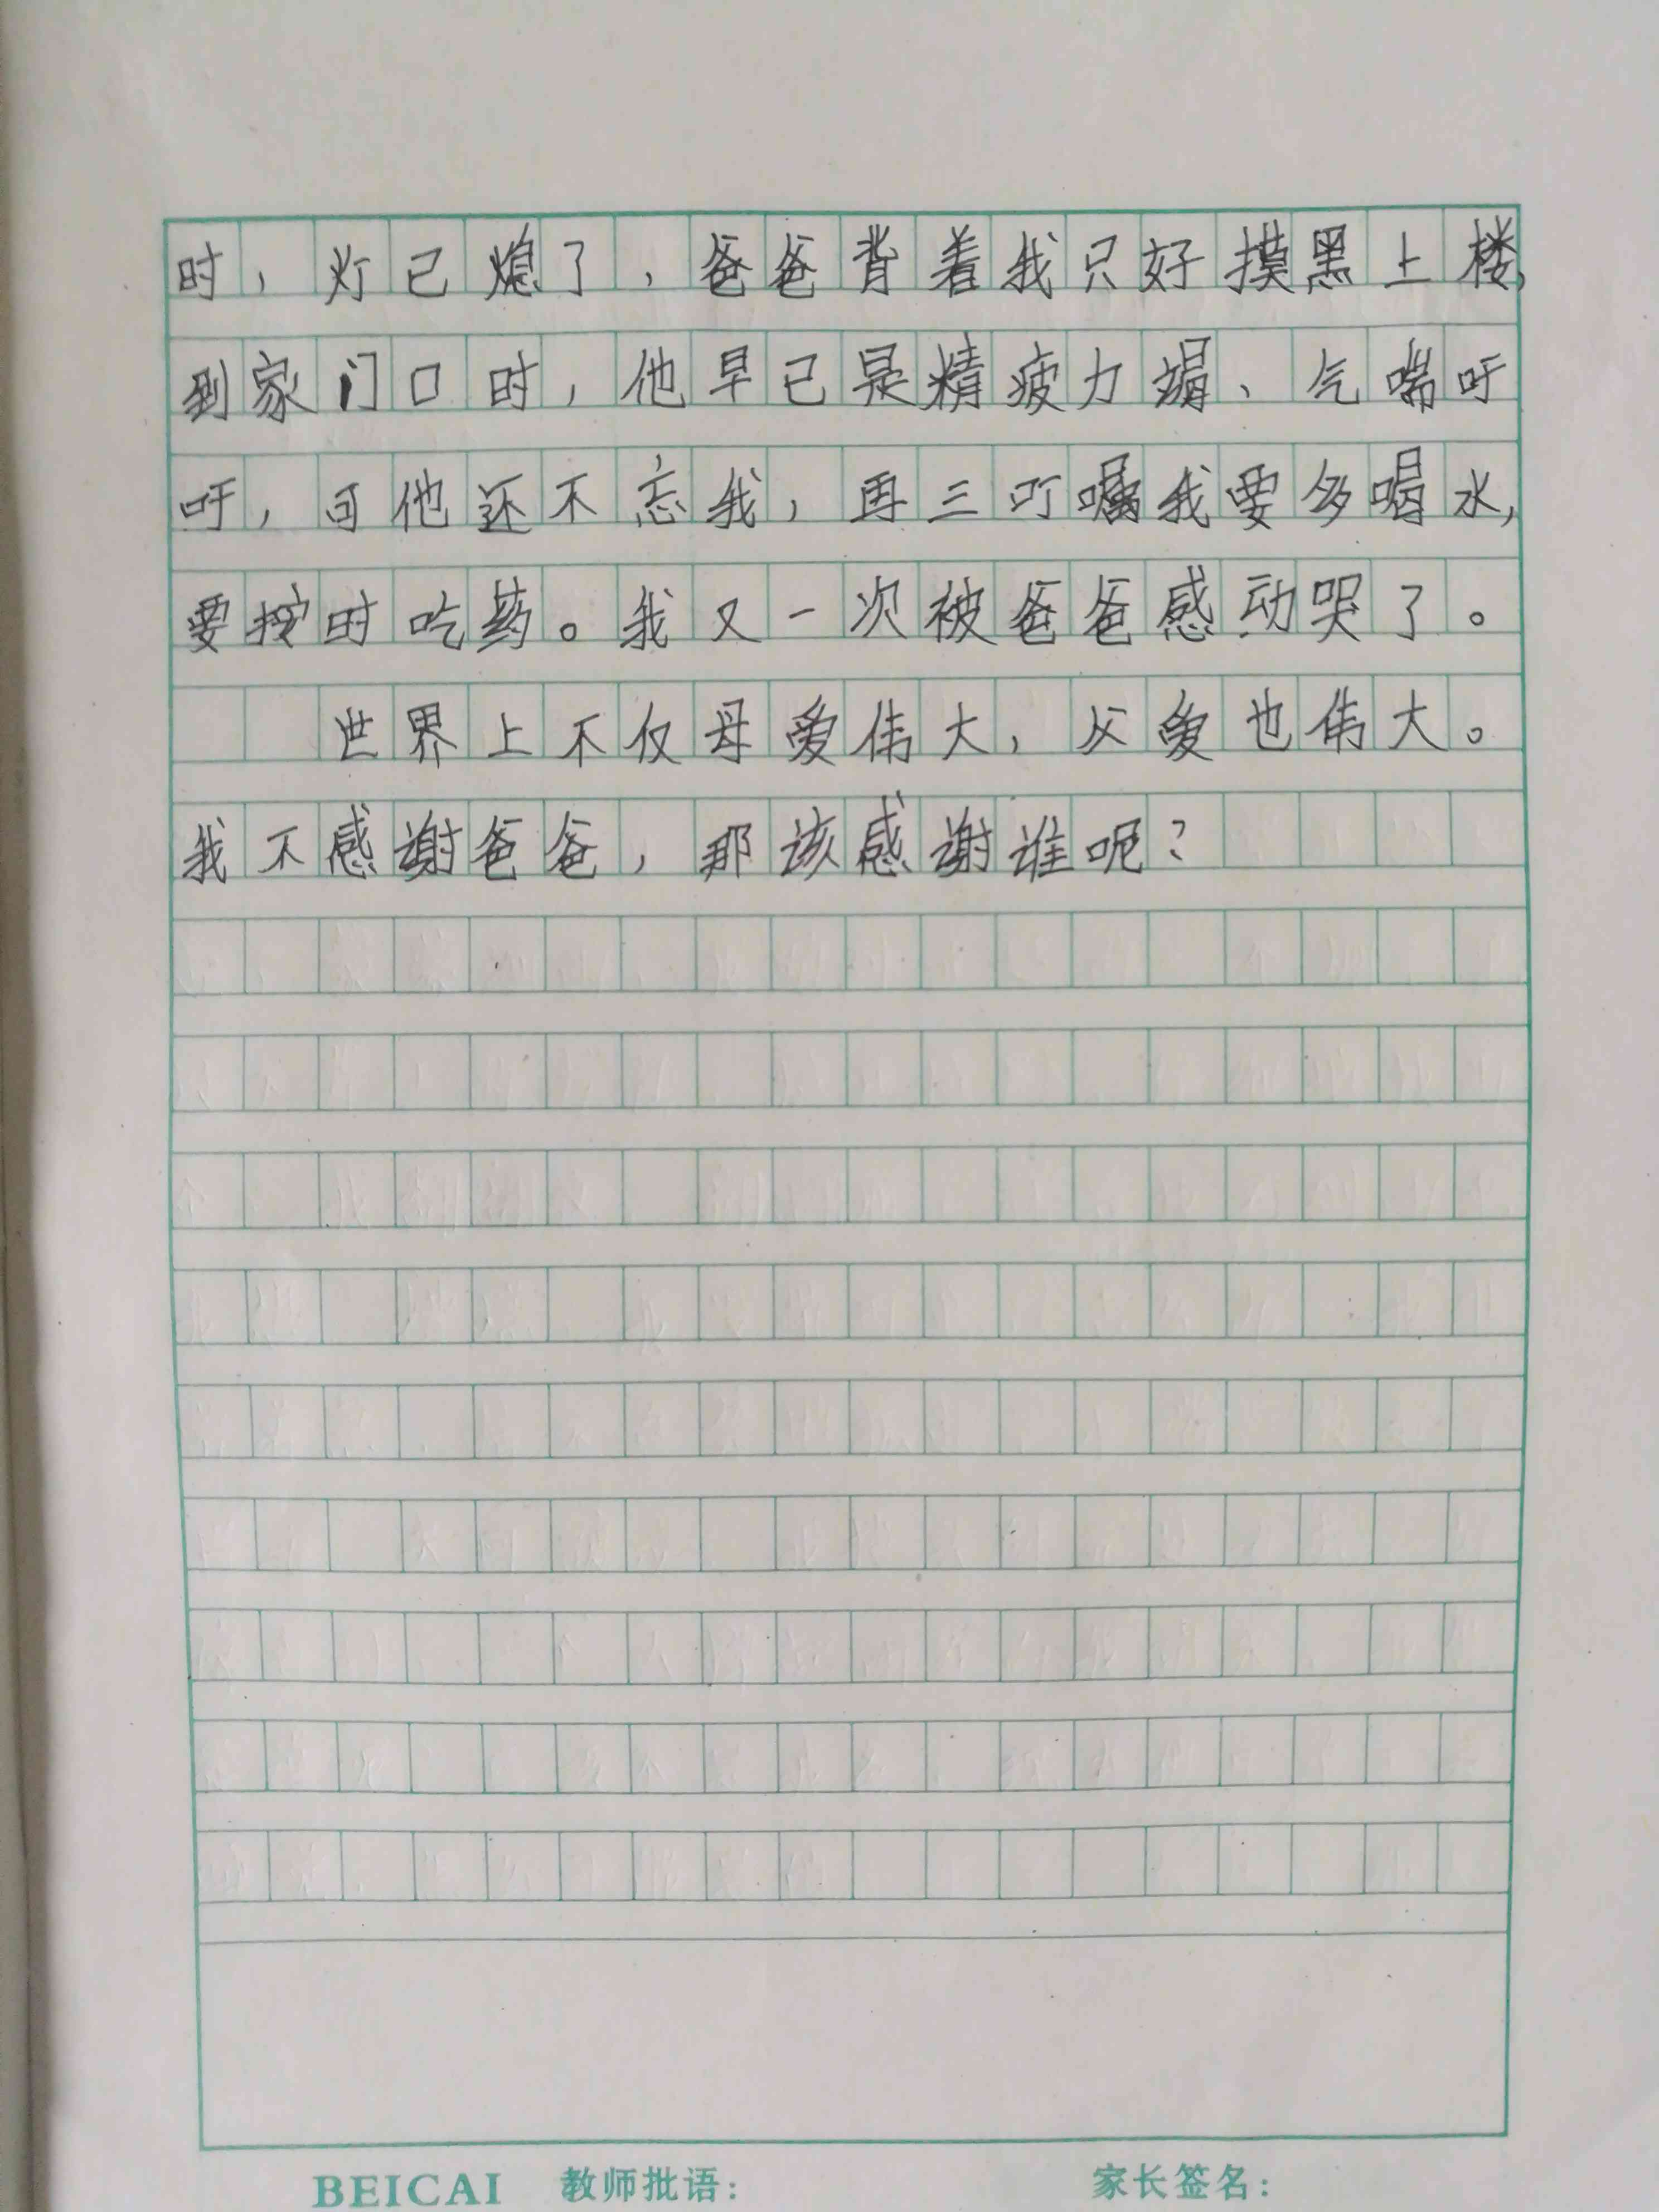 时，灯已熄了，爸爸背着我只好摸黑上楼，
到家门口时，他早已是精疲力竭、气喘吁
吁，可他还不忘我，再三叮嘱我要多喝水，
要按时吃药。我又一次被爸爸感动哭了。
世界上不仅母爱伟大，父爱也伟大。
我不感谢爸爸，那该感谢谁呢？
BEICAI 教师批语： 家长签名：